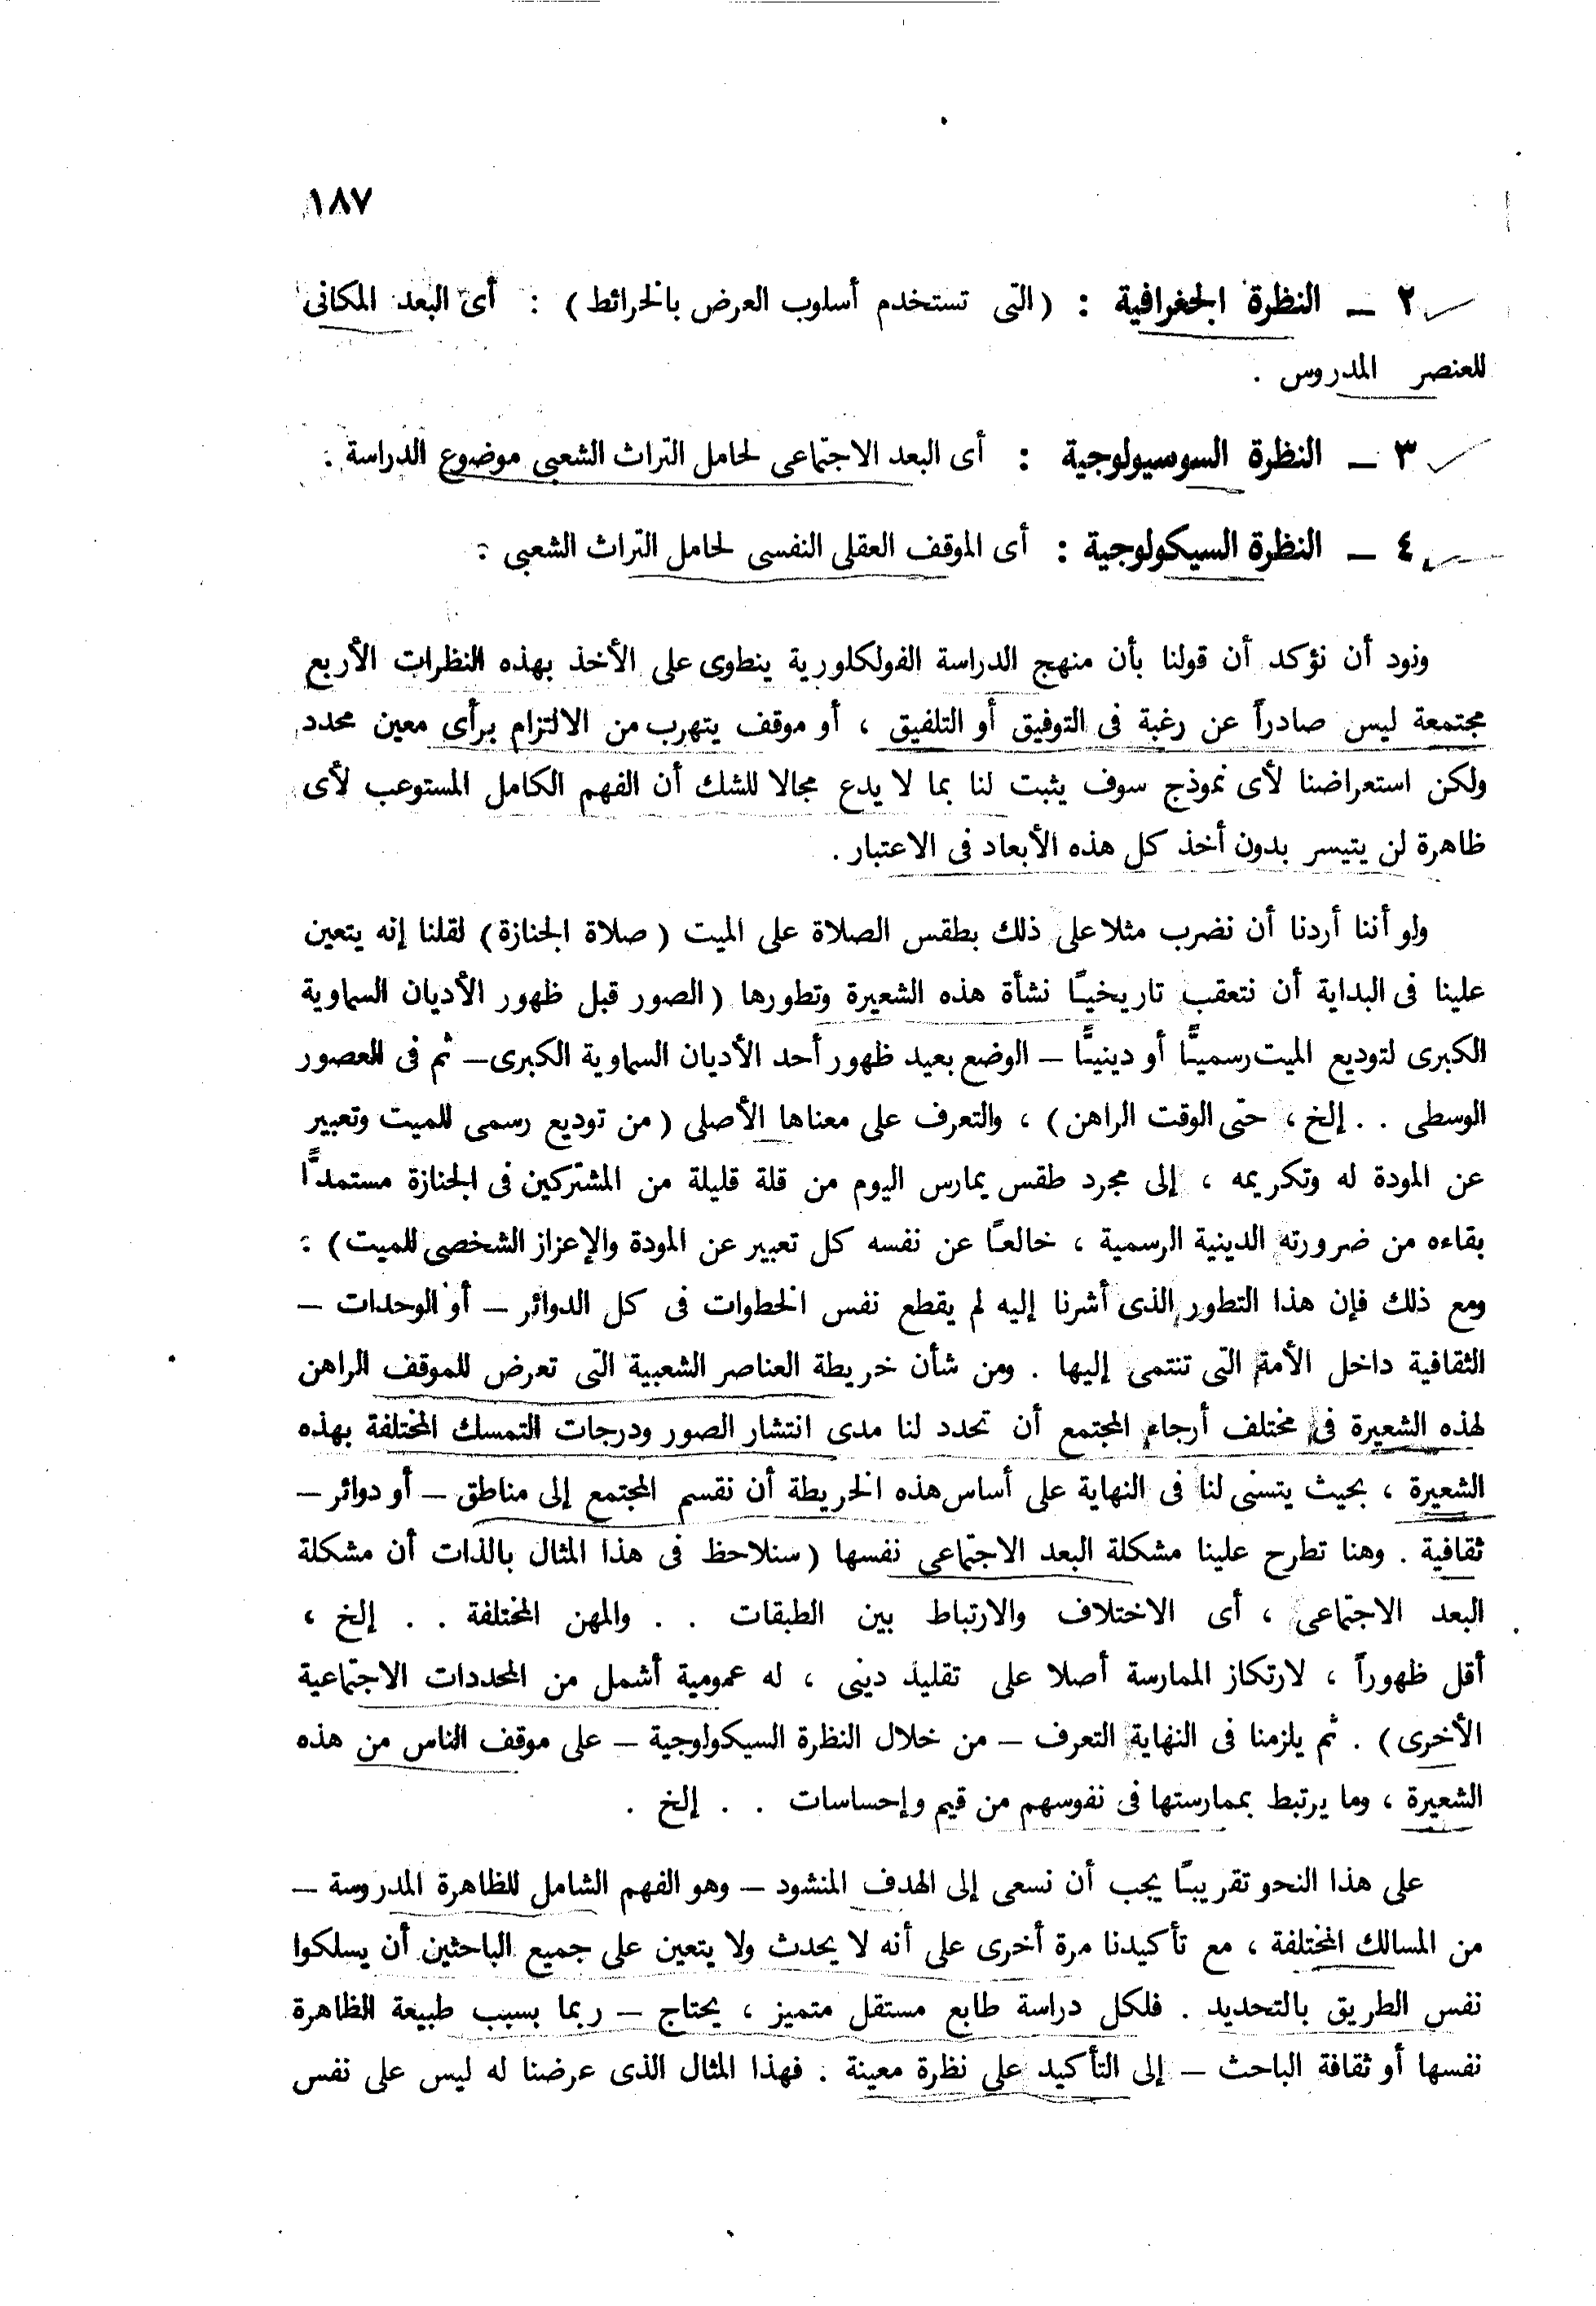 ١٨٧
٢ – النظرة الجغرافية : (التى تستخدم أسلوب العرض بالخرائط) : أى البعد المكانى
للعنصر المدروس .
٣ – النظرة السوسيولوجية : أى البعد الاجتماعى لحامل التراث الشعبى موضوع الدراسة .
٤ – النظرة السيكولوجية : أى الموقف العقلى النفسى لحامل التراث الشعبى :
ونود أن نؤكد أن قولنا بأن منهج الدراسة الفولكلورية ينطوى على الأخذ بهذه النظرات الأربع
مجتمعة ليس صادراً عن رغبة فى التوفيق أو التلفيق ، أو موقف يتهرب من الالتزام برأى معين محدد
ولكن استعراضنا لأى نموذج سوف يثبت لنا بما لا يدع مجالا للشك أن الفهم الكامل المستوعب لأى
ظاهرة لن يتيسر بدون أخذ كل هذه الأبعاد فى الاعتبار .
ولو أننا أردنا أن نضرب مثلا على ذلك بطقس الصلاة على الميت (صلاة الجنازة) لقلنا إنه يتعين
علينا فى البداية أن نتعقب تاريخيـًا نشأة هذه الشعيرة وتطورها (الصور قبل ظهور الأديان السماوية
الكبرى لتوديع الميت رسميـًّا أو دينيـًّا – الوضع بعيد ظهور أحد الأديان السماوية الكبرى – ثم فى العصور
الوسطى . . إلخ ، حتى الوقت الراهن) ، والتعرف على معناها الأصلى (من توديع رسمى للميت وتعبير
عن المودة له وتكريمه ، إلى مجرد طقس يمارس اليوم من قلة قليلة من المشتركين فى الجنازة مستمدًّا
بقاءه من ضرورته الدينية الرسمية ، خالعـًا عن نفسه كل تعبير عن المودة والإعزاز الشخصى للميت) :
ومع ذلك فإن هذا التطور الذى أشرنا إليه لم يقطع نفس الخطوات فى كل الدوائر – أو الوحدات –
الثقافية داخل الأمة التى تنتمى إليها . ومن شأن خريطة العناصر الشعبية التى تعرض للموقف الراهن
لهذه الشعيرة فى مختلف أرجاء المجتمع أن تحدد لنا مدى انتشار الصور ودرجات التمسك المختلفة بهذه
الشعيرة ، بحيث يتسنى لنا فى النهاية على أساس هذه الخريطة أن نقسم المجتمع إلى مناطق – أو دوائر –
ثقافية . وهنا تطرح علينا مشكلة البعد الاجتماعى نفسها (سنلاحظ فى هذا المثال بالذات أن مشكلة
البعد الاجتماعى ، أى الاختلاف والارتباط بين الطبقات . . والمهن المختلفة . . إلخ ،
أقل ظهوراً ، لارتكاز الممارسة أصلا على تقليد دينى ، له عمومية أشمل من المحددات الاجتماعية
الأخرى) . ثم يلزمنا فى النهاية التعرف – من خلال النظرة السيكولوجية – على موقف الناس من هذه
الشعيرة ، وما يرتبط بممارستها فى نفوسهم من قيم وإحساسات . . إلخ .
على هذا النحو تقريبـًا يجب أن نسعى إلى الهدف المنشود – وهو الفهم الشامل للظاهرة المدروسة –
من المسالك المختلفة ، مع تأكيدنا مرة أخرى على أنه لا يحدث ولا يتعين على جميع الباحثين أن يسلكوا
نفس الطريق بالتحديد . فلكل دراسة طابع مستقل متميز ، يحتاج – ربما بسبب طبيعة الظاهرة
نفسها أو ثقافة الباحث – إلى التأكيد على نظرة معينة . فهذا المثال الذى عرضنا له ليس على نفس